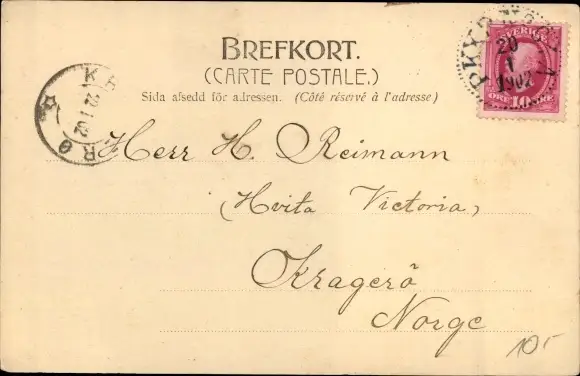 BREFKORT.
(CARTE POSTALE.)
Sida afsedd för adressen. (Côté réservé à l'adresse)
SVERIGE
ÖRE 10 ÖRE
20
1
1902
KR RØ
22 1 02
Herr H. Reimann
(Hvita Victoria)
Kragerö
Norge
10-